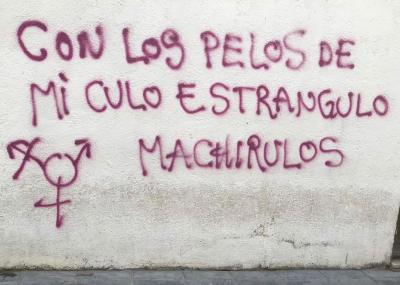 CON LOS PELOS DE
MI CULO ESTRANGULO
MACHIRULOS